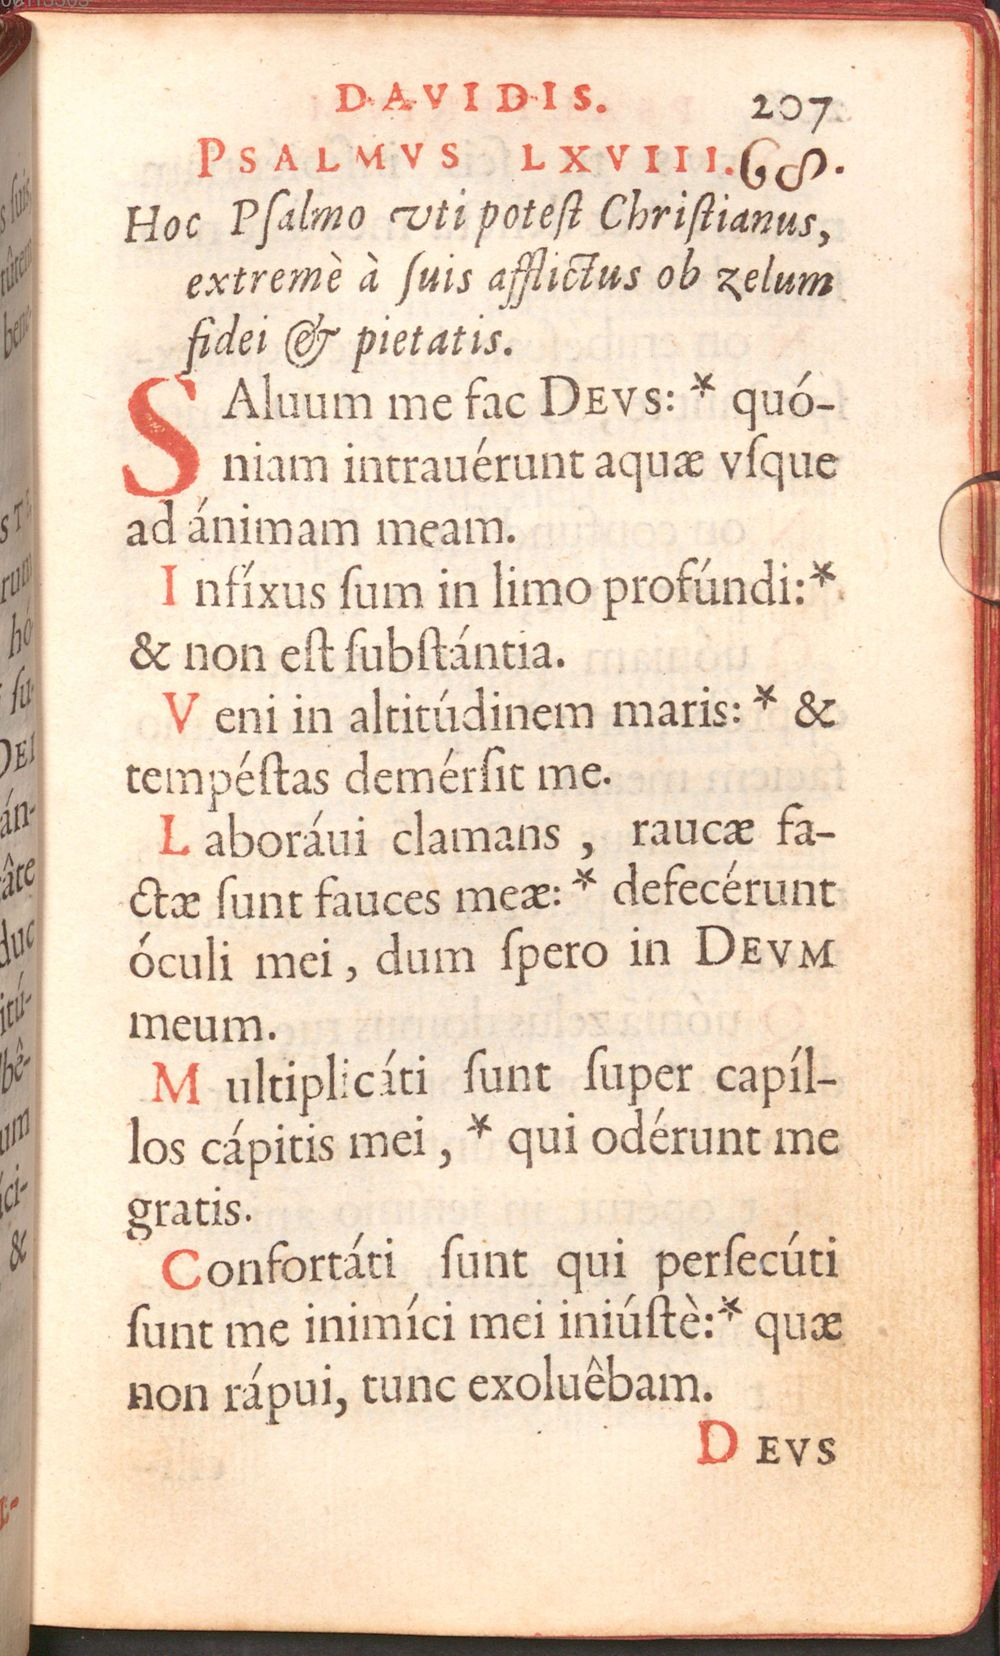 DAVIDIS. 207
PSALMVS LXVIII. 68.
Hoc Pſalmo vti poteſt Chriſtianus,
extremè à ſuis afflictus ob zelum
fidei & pietatis.
SAluum me fac DEVS: * quó-
niam intrauérunt aquæ vſque
ad ánimam meam.
Infíxus ſum in limo profúndi: *
& non eſt ſubſtántia.
Veni in altitúdinem maris: * &
tempéſtas demérſit me.
Laboráui clamans, raucæ fa-
ctæ ſunt fauces meæ: * defecérunt
óculi mei, dum ſpero in DEVM
meum.
Multiplicáti ſunt ſuper capíl-
los cápitis mei, * qui odérunt me
gratis.
Confortáti ſunt qui perſecúti
ſunt me inimíci mei iniúſtè: * quæ
non rápui, tunc exoluêbam.
DEVS